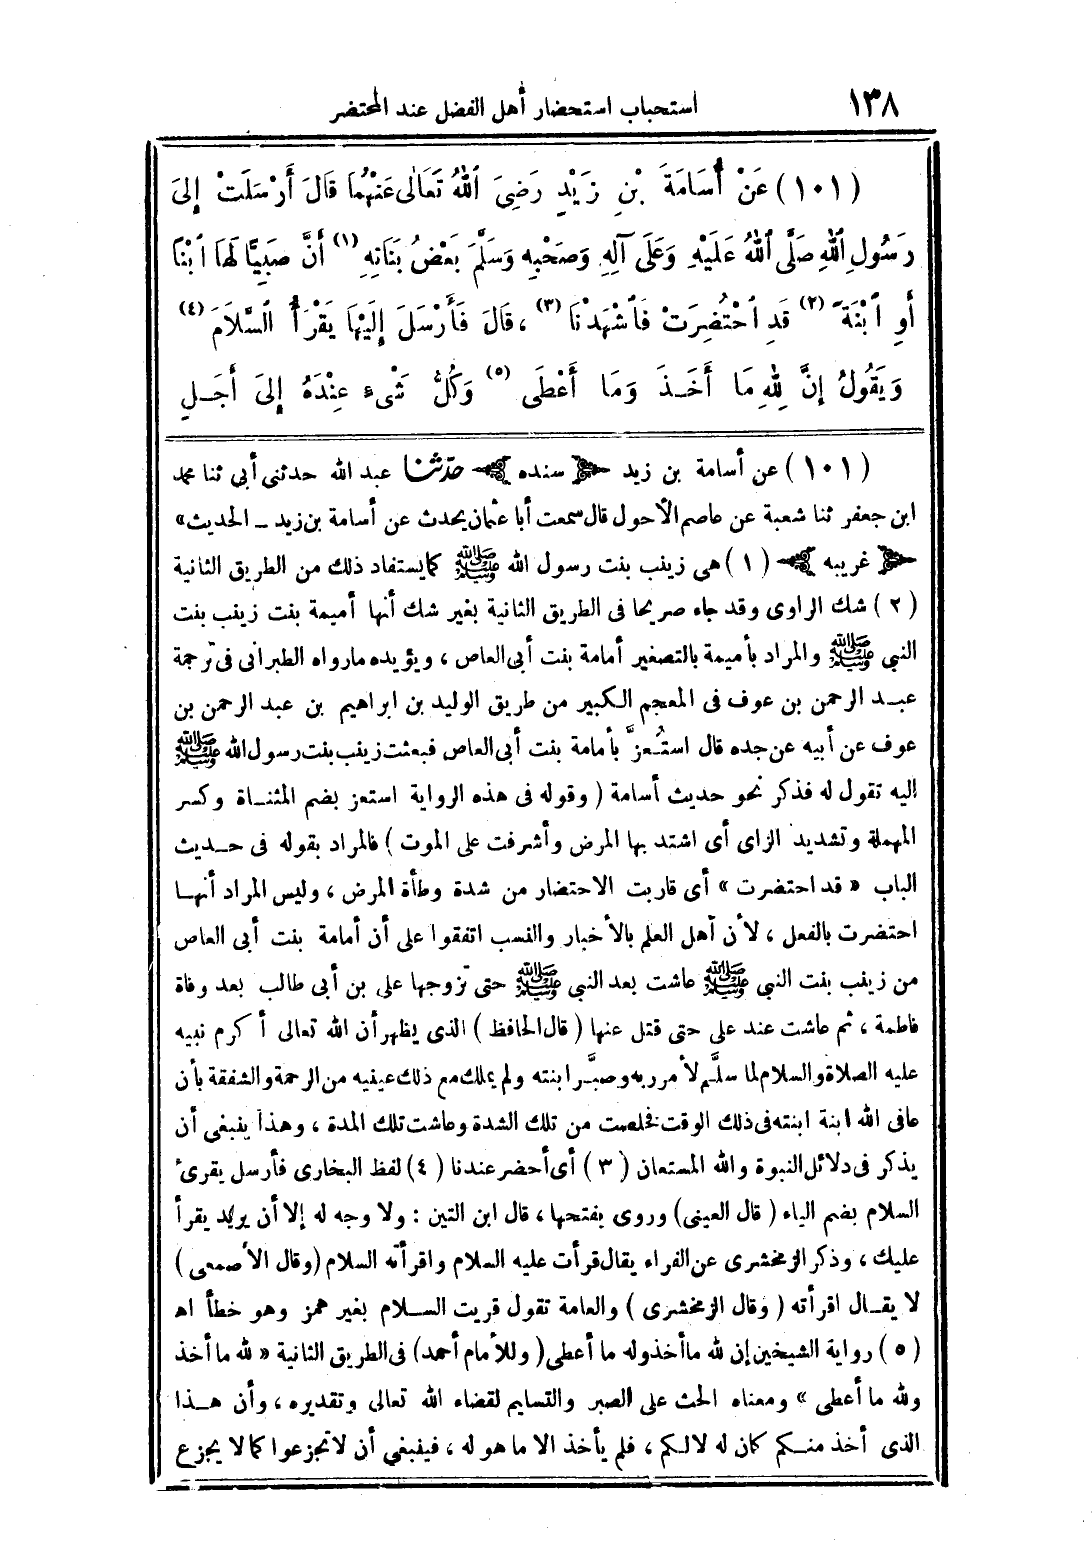 ١٣٨ استحباب استحضار أهل الفضل عند المحتضر
(١٠١) عَنْ أُسَامَةَ بْنِ زَيْدٍ رَضِيَ اللهُ تَعَالَى عَنْهُمَا قَالَ أَرْسَلَتْ إِلَى
رَسُولِ اللهِ صَلَّى اللهُ عَلَيْهِ وَعَلَى آلِهِ وَصَحْبِهِ وَسَلَّمَ بَعْضُ بَنَاتِهِ (١) أَنَّ صَبِيًّا لَهَا ابْنًا
أَوِ ابْنَةً (٢) قَدِ احْتُضِرَتْ فَاشْهَدْنَا (٣) ، قَالَ فَأَرْسَلَ إِلَيْهَا يَقْرَأُ السَّلَامَ (٤)
وَيَقُولُ إِنَّ لِلهِ مَا أَخَـذَ وَمَا أَعْطَى (٥) وَكُلُّ شَىْءٍ عِنْدَهُ إِلَى أَجَـلٍ
(١٠١) عن أسامة بن زيد ﴿ سنده ﴾ حدّثنا عبد الله حدثنى أبى ثنا محمد
ابن جعفر ثنا شعبة عن عاصم الأحول قال سمعت أبا عثمان يحدث عن أسامة بن زيد ــ الحديث»
﴿ غريبه ﴾ (١) هى زينب بنت رسول الله ﷺ كما يستفاد ذلك من الطريق الثانية
(٢) شك الراوى وقد جاء صريحا فى الطريق الثانية بغير شك أنها أميمة بنت زينب بنت
النبي ﷺ والمراد بأميمة بالتصغير أمامة بنت أبى العاص ، ويؤيده مارواه الطبرانى فى ترجمة
عبـد الرحمن بن عوف فى المعجم الكبير من طريق الوليد بن ابراهيم بن عبد الرحمن بن
عوف عن أبيه عن جده قال استُعزَّ بأمامة بنت أبى العاص فبعثت زينب بنت رسول الله ﷺ
إليه تقول له فذكر نحو حديث أسامة (وقوله فى هذه الرواية استعز بضم المثنـاة وكسر
المهملة وتشديد الزاى أى اشتد بها المرض وأشرفت على الموت) فالمراد بقوله فى حـديث
الباب « قد احتضرت » أى قاربت الاحتضار من شدة وطأة المرض ، وليس المراد أنهـا
احتضرت بالفعل ، لأن أهل العلم بالأخبار والنسب اتفقوا على أن أمامة بنت أبى العاص
من زينب بنت النبي ﷺ عاشت بعد النبي ﷺ حتى تزوجها على بن أبى طالب بعد وفاة
فاطمة ، ثم عاشت عند على حتى قتل عنها (قال الحافظ) الذى يظهر أن الله تعالى أكرم نبيه
عليه الصلاة والسلام لما سلَّم لأمر ربه وصبَّر ابنته ولم يملك مع ذلك عينيه من الرحمة والشفقة بأن
عافى الله ابنة ابنته فى ذلك الوقت فخلصت من تلك الشدة وعاشت تلك المدة ، وهذا ينبغى أن
يذكر فى دلائل النبوة والله المستعان (٣) أى أحضر عندنا (٤) لفظ البخارى فأرسل يقرىء
السلام بضم الياء (قال العينى) وروى بفتحها ، قال ابن التين : ولا وجه له إلا أن يريد يقرأ
عليك ، وذكر الزمخشرى عن الفراء يقال قرأت عليه السلام واقرأته السلام (وقال الأصمعى)
لا يقـال اقرأته (وقال الزمخشرى) والعامة تقول قريت السـلام بغير همز وهو خطأ اهـ
(٥) رواية الشيخين إن لله ما أخذ وله ما أعطى (وللأمام أحمد) فى الطريق الثانية « لله ما أخذ
ولله ما أعطى » ومعناه الحث على الصبر والتسليم لقضاء الله تعالى وتقديره ، وأن هـذا
الذى أخذ منـكم كان له لا لـكم ، فلم يأخذ الا ما هو له ، فينبغى أن لا تجزعوا كما لا يجزع